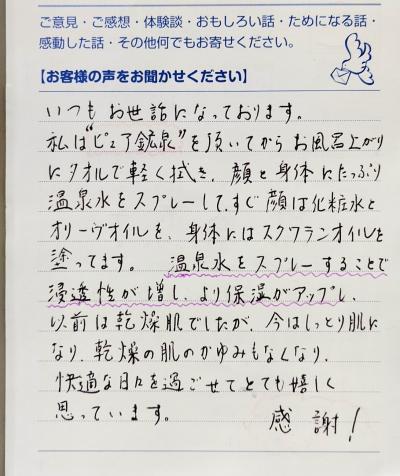 ご意見・ご感想・体験談・おもしろい話・ためになる話・
感動した話・その他何でもお寄せください。
【お客様の声をお聞かせください】
いつもお世話になっております。
私は"ピュア鉱泉"を頂いてからお風呂上がり
にタオルで軽く拭き、顔と身体にたっぷり
温泉水をスプレーして、すぐ顔は化粧水と
オリーヴオイルを、身体にはスクワランオイルを
塗ってます。温泉水をスプレーすることで
浸透性が増し、より保湿がアップし、
以前は乾燥肌でしたが、今はしっとり肌に
なり、乾燥の肌のかゆみもなくなり、
快適な日々を過ごせてとても嬉しく
思っています。 感謝!